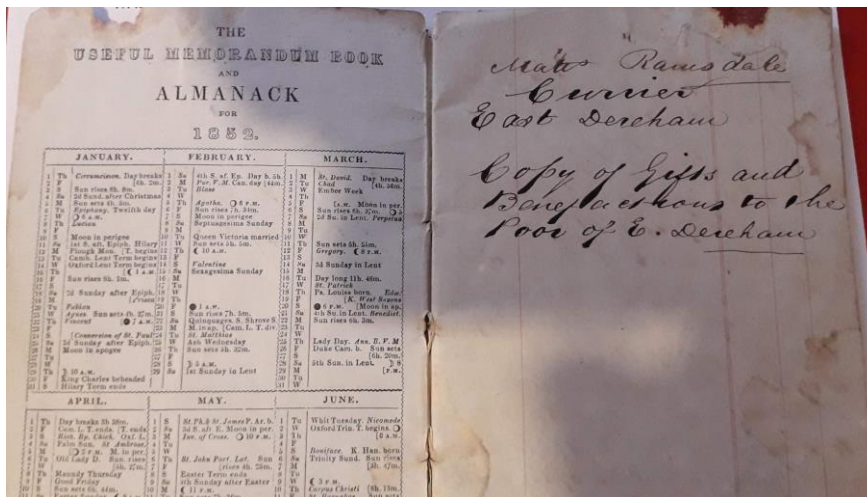 THE
USEFUL MEMORANDUM BOOK
AND
ALMANACK
FOR
1852.
JANUARY.
1 Th Circumcision. Day breaks
2 F [6h. 2m.
3 S Sun rises 8h. 8m.
4 Su 2d Sund. after Christmas
5 M Sun sets 4h. 3m.
6 Tu Epiphany. Twelfth day
7 W 6 A.M.
8 Th Lucian
9 F
10 S Moon in perigee
11 Su 1st S. af. Epiph. Hilary
12 M Plough Mon. [T. begins
13 Tu Camb. Lent Term begins
14 W Oxford Lent Term begins
15 Th [1 A.M.
16 F Sun rises 8h. 1m.
17 S
18 Su 2d Sunday after Epiph.
19 M [Prisca
20 Tu Fabian
21 W Agnes Sun sets 4h. 27m.
22 Th Vincent 7 A.M.
23 F
24 S [Conversion of St. Paul
25 Su 3d Sunday after Epiph.
26 M Moon in apogee
27 Tu
28 W
29 Th 10 A.M.
30 F King Charles beheaded
31 S Hilary Term ends
FEBRUARY.
1 Su 4th S. af. Ep. Day b. 5h.
2 M Pur. V. M. Can. day [44m.
3 Tu Blase
4 W
5 Th Agatha. 6 P.M.
6 F Sun rises 7h. 34m.
7 S Moon in perigee
8 Su Septuagesima Sunday
9 M
10 Tu Queen Victoria married
11 W Sun sets 5h. 5m.
12 Th 10 A.M.
13 F
14 S Valentine
15 Su Sexagesima Sunday
16 M
17 Tu
18 W
19 Th
20 F 1 A.M.
21 S Sun rises 7h. 5m.
22 Su Quinquages. S. Shrove S
23 M M. in ap. [Cam. L. T. div.
24 Tu St. Matthias
25 W Ash Wednesday
26 Th Sun sets 5h. 32m.
27 F
28 S 5 A.M.
29 Su 1st Sunday in Lent
MARCH.
1 M St. David. Day breaks
2 Tu Chad [4h. 56m.
3 W Ember Week
4 Th
5 F [A.M. Moon in per.
6 S Sun rises 6h. 37m. 5
7 Su 2d Su. in Lent. Perpetua
8 M
9 Tu
10 W
11 Th Sun sets 5h. 55m.
12 F Gregory. 8 P.M.
13 S
14 Su 3d Sunday in Lent
15 M
16 Tu Day long 11h. 46m.
17 W St. Patrick
18 Th Ps. Louisa born. Edw.
19 F [K. West Saxons
20 S 6 P.M. [Moon in ap.
21 Su 4th Su. in Lent. Benedict.
22 M Sun rises 6h. 3m.
23 Tu
24 W
25 Th Lady Day. Ann. B. V. M
26 F Duke Cam. b. Sun sets
27 S [6h. 20m.
28 Su 5th Sun. in Lent. 8
29 M [P.M.
30 Tu
31 W
APRIL.
1 Th Day breaks 3h 38m.
2 F Cam. L. T. ends. [T. ends
3 S Rich. Bp. Chich. Oxf. L.
4 Su Palm Sun. St Ambrose.
5 M 5 P.M. M. in per.
6 Tu Old Lady D. Sun rises
7 W [5h. 27m.
8 Th Maundy Thursday
9 F Good Friday
10 S Sun sets 6h. 44m.
MAY.
1 S St. Ph. & St. James P. Ar. b.
2 Su 3d S. aft E. Moon in per.
3 M Inv. of Cross. 10 P.M.
4 Tu
5 W
6 Th St. John Port. Lat. Sun
7 F [rises 4h. 25m.
8 S Easter Term ends
9 Su 4th Sunday after Easter
10 M 11 P.M.
JUNE.
1 Tu Whit Tuesday. Nicomede
2 W Oxford Trin. T. begins
3 Th [6 A.M.
4 F
5 S Boniface. K. Han. born
6 Su Trinity Sund. Sun rises
7 M [3h. 47m.
8 Tu
9 W 3 P.M.
10 Th Corpus Christi
Matts Ramsdale
Currier
East Dereham
Copy of Gifts and
Benefactions to the
Poor of E. Dereham